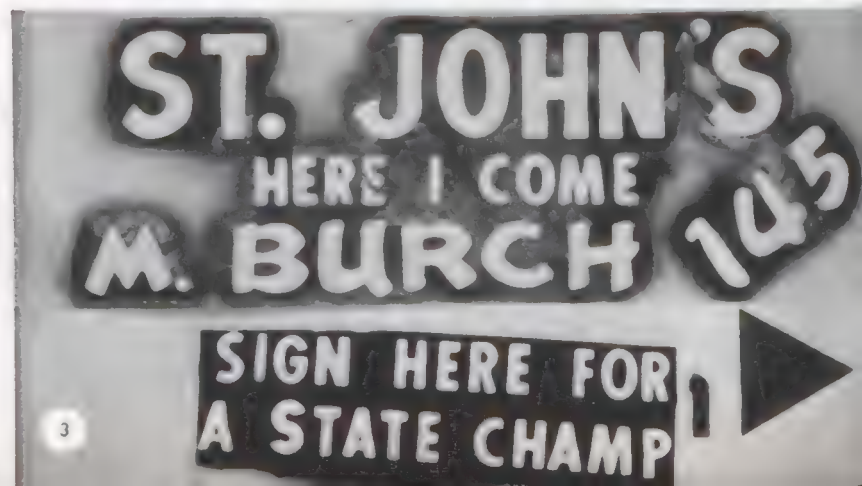 ST. JOHN'S
HERE I COME
M. BURCH 145
SIGN HERE FOR
A STATE CHAMP
3